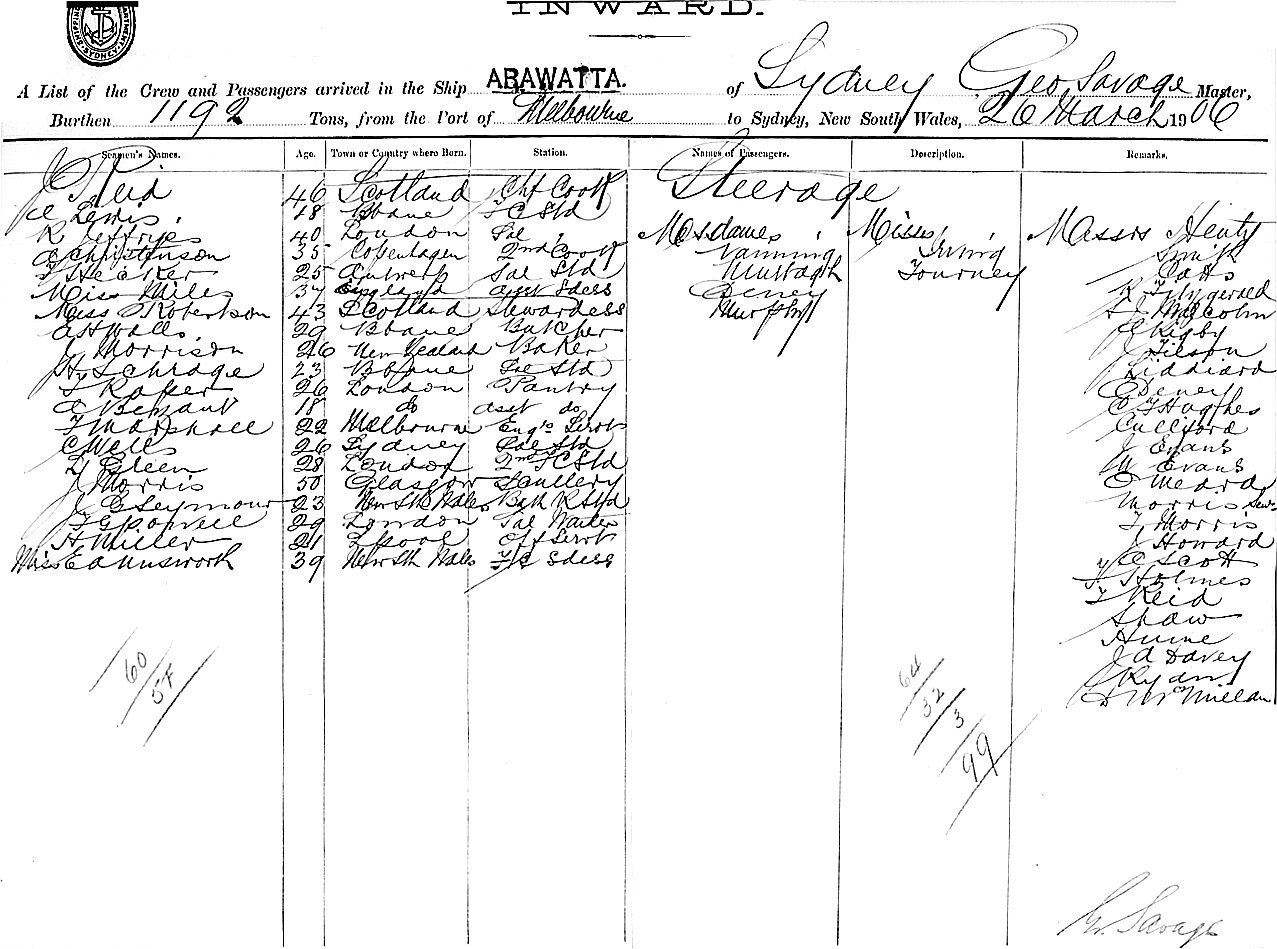 SHIPPING SYDNEY
INWARD.
A List of the Crew and Passengers arrived in the Ship ARAWATTA. of Sydney Geo Savage Master,
Burthen 1192 Tons, from the Port of Melbourne to Sydney, New South Wales, 26 March 1906
Seamen's Names. Age. Town or Country where Born. Station. Names of Passengers. Description. Remarks.
J Reid 46 Scotland Chf Cook Steerage
Lewis 48 Bbane FC Std
R Jeffryes 40 London Sal Mesdames Misses Messrs Henty
A Christenson 35 Copenhagen 2nd Cook Vanning Irving Smith
F Hecker 25 Antwerp Sal Std Murtagh Tourney Cotts
Miss Miles 37 England asst Sdess Deney R Fitzgerald
Miss Robertson 43 Scotland Stewardess Murphy Malcolm
A H Walls 29 Bbane Butcher Rigby
J Morrison 26 New Zealand Baker J Tilson
Hy Schrage 23 Bbane Sal Std Liddiard
T Raper 26 London Pantry Deney
A Bemant 18 do asst do E F Hughes
F Marshall 22 Melbourne Engrs Servt Culliford
C Wells 26 Sydney Sal Std J Evans
Y Green 28 London 2nd FC Std W Evans
J Morris 50 Glasgow Scullery O Meara
J G Seymour 23 New Sth Wales Bth R Std Morris Senr
F G Powell 29 London Sal Waiter F Morris
H Miller 21 Lpool Off Servt J Howard
Miss E Ainsworth 39 New Sth Wales FC Sdess E Scott
Holmes
F Reid
Shaw
Hume
J A Davey
J Ryan
McMillan
60
57
64
32
3
99
G. Savage